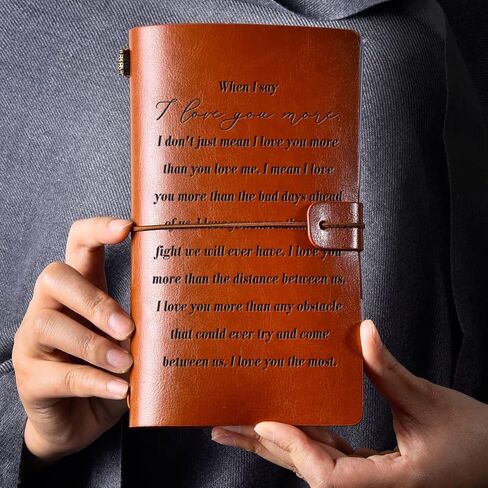 When I say
I love you more,
I don't just mean I love you more
than you love me. I mean I love
you more than the bad days ahead
of us. I love you
fight we will ever have. I love you
more than the distance between us.
I love you more than any obstacle
that could ever try and come
between us. I love you the most.